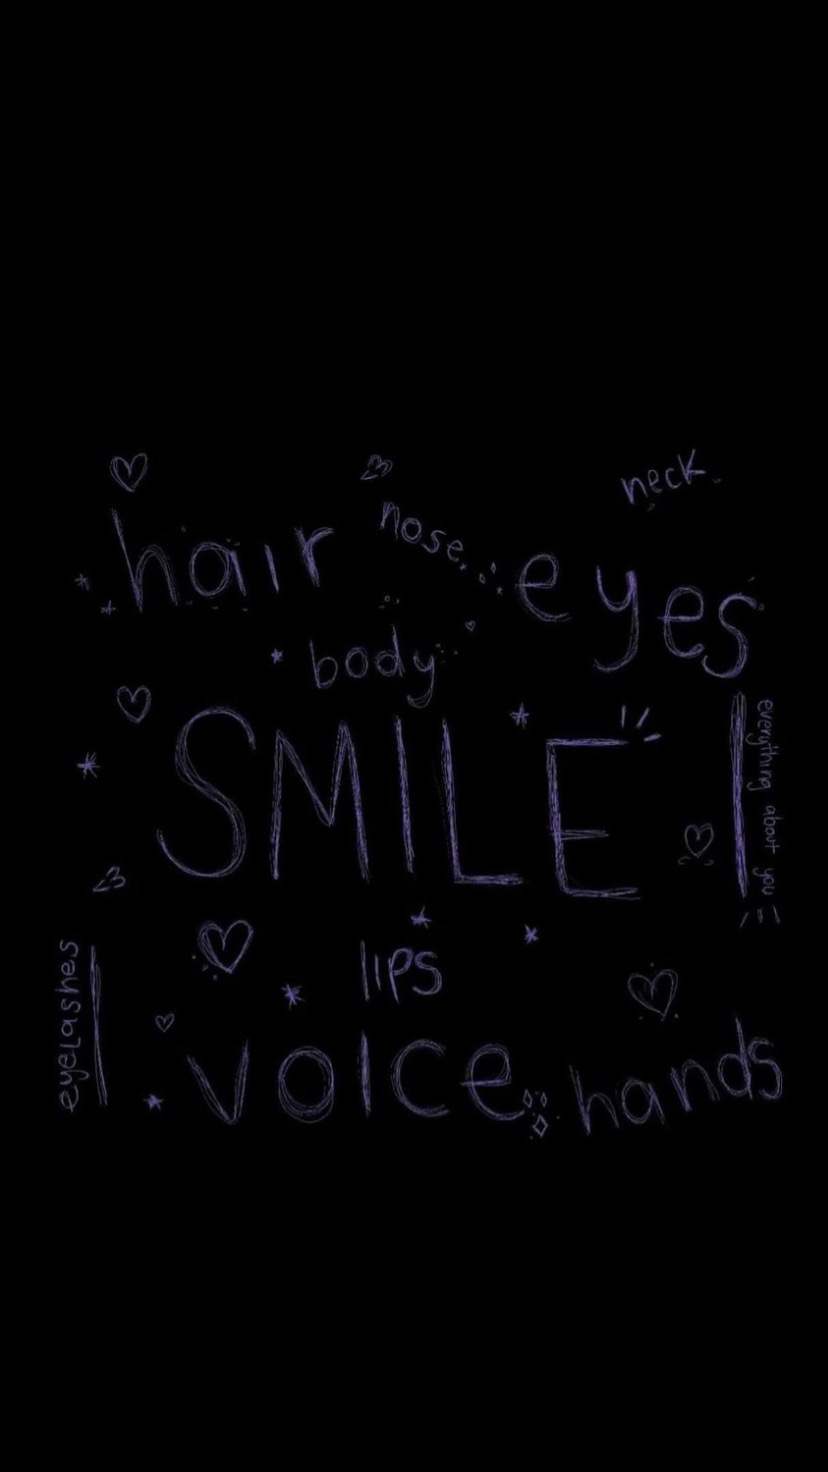 neck
hair
nose
eyes
body
SMILE
everything about you
eyelashes
lips
voice
hands